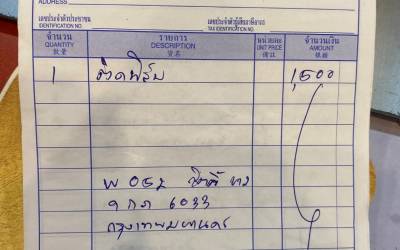 ADDRESS
เลขประจำตัวประชาชน เลขประจำตัวผู้เสียภาษีอากร
IDENTIFICATION NO. TAX IDENTIFICATION NO.
จำนวน รายการ หน่วยละ จำนวนเงิน
QUANTITY DESCRIPTION UNIT PRICE AMOUNT
數量 貨名 價銀
1 ติดฟิล์ม 1,500
9 กภ 6033
กรุงเทพมหานคร